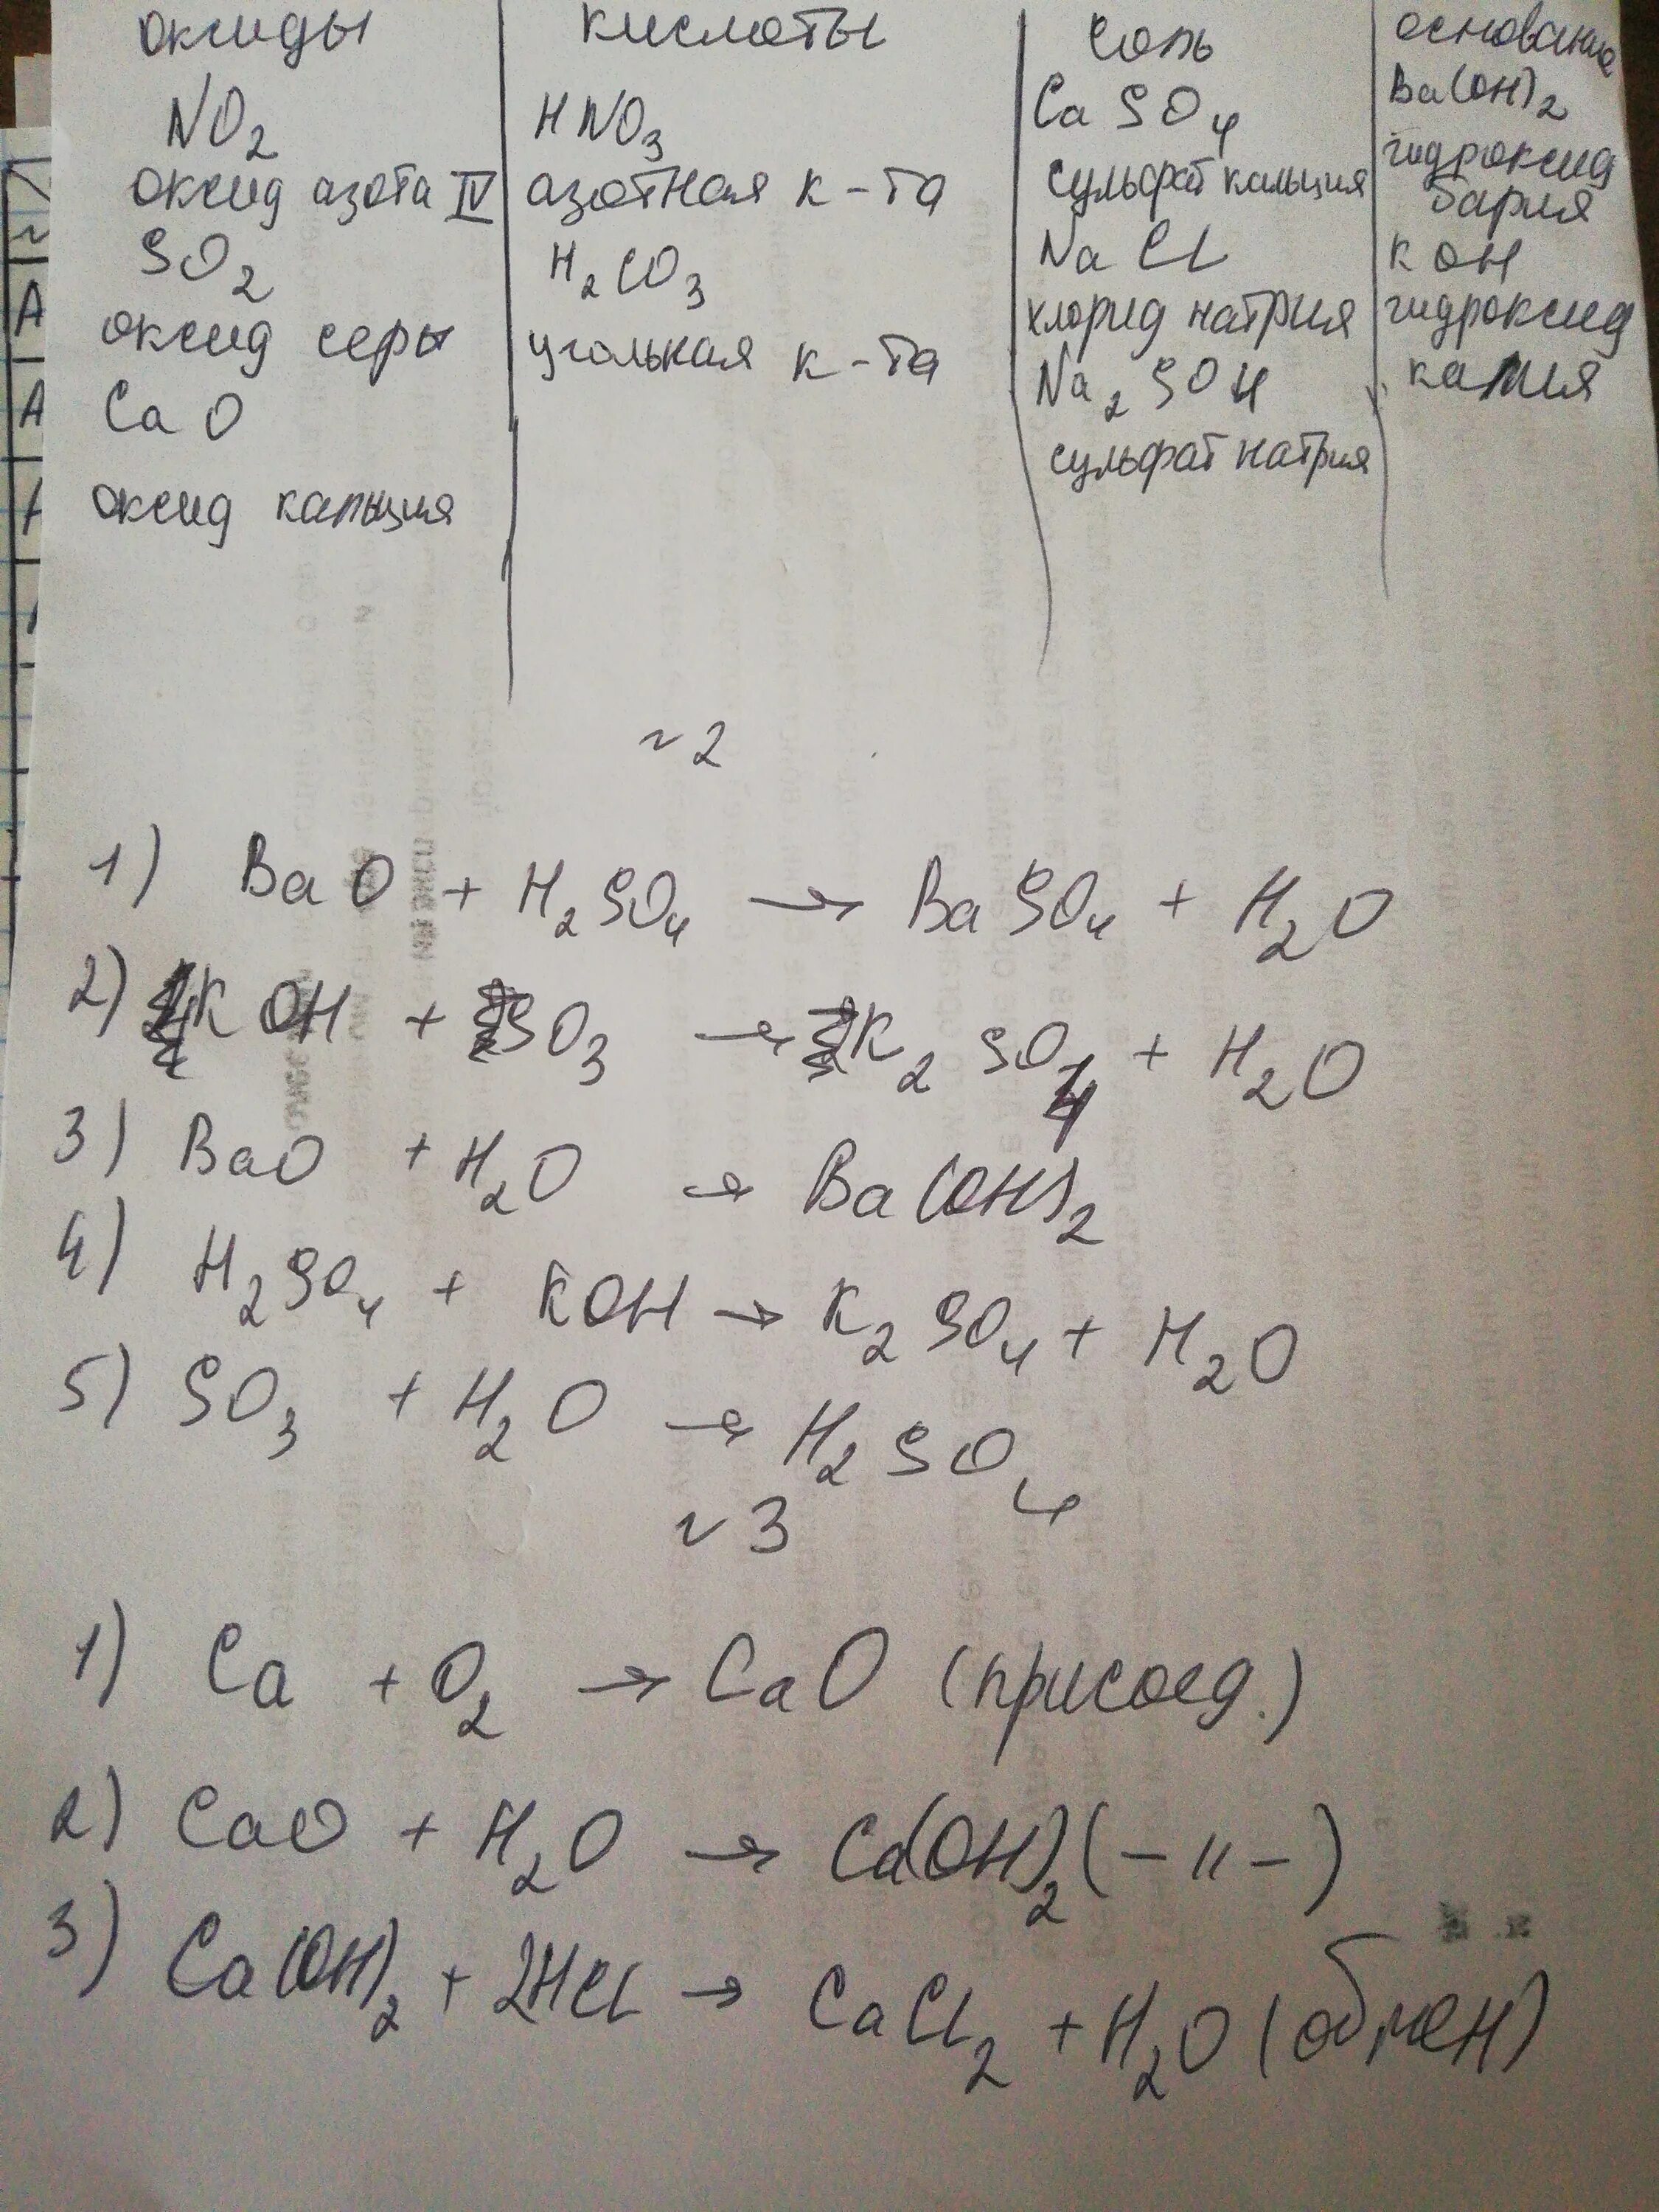 оксиды кислоты соль основание
NO₂ HNO₃ CaSO₄ Ba(OH)₂
оксид азота IV азотная к-та сульфат кальция гидроксид бария
SO₂ H₂CO₃ NaCl KOH
оксид серы угольная к-та хлорид натрия гидроксид калия
CaO Na₂SO4
оксид кальция сульфат натрия
№2
1) BaO + H₂SO₄ → BaSO₄ + H₂O
2) KOH + SO₃ → K₂SO₄ + H₂O
3) BaO + H₂O → Ba(OH)₂
4) H₂SO₄ + KOH → K₂SO₄ + H₂O
5) SO₃ + H₂O → H₂SO₄
№3
1) Ca + O₂ → CaO (присоед.)
2) CaO + H₂O → Ca(OH)₂ (-〃-)
3) Ca(OH)₂ + 2HCl → CaCl₂ + H₂O (обмен)